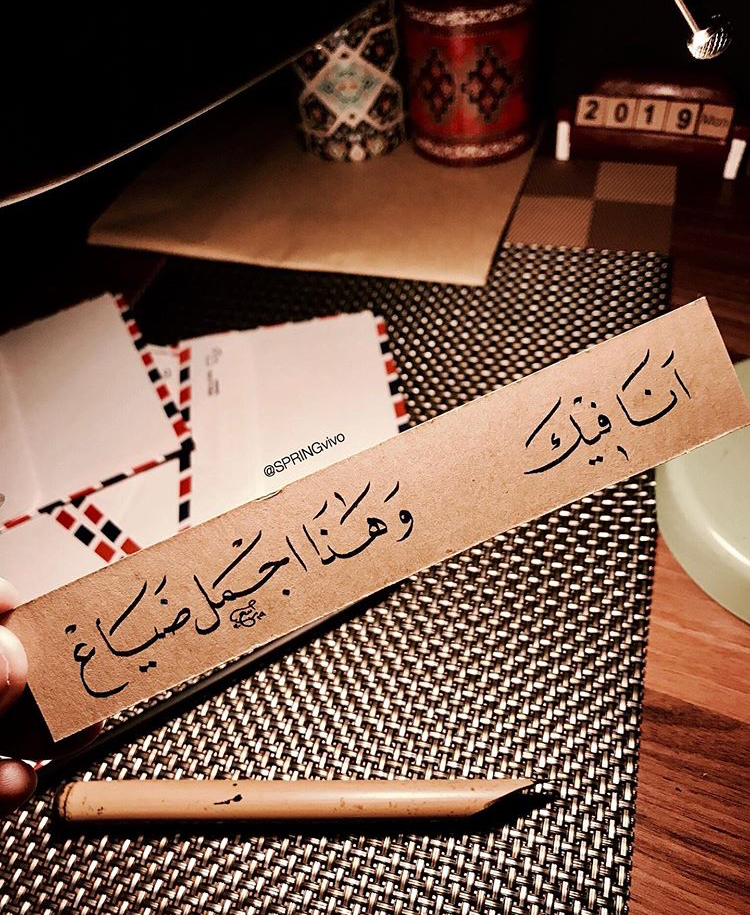 2019
@SPRINGvivo
اَنَا فِيْكَ
وَهٰذَا اجْمَل ضَيَاعْ